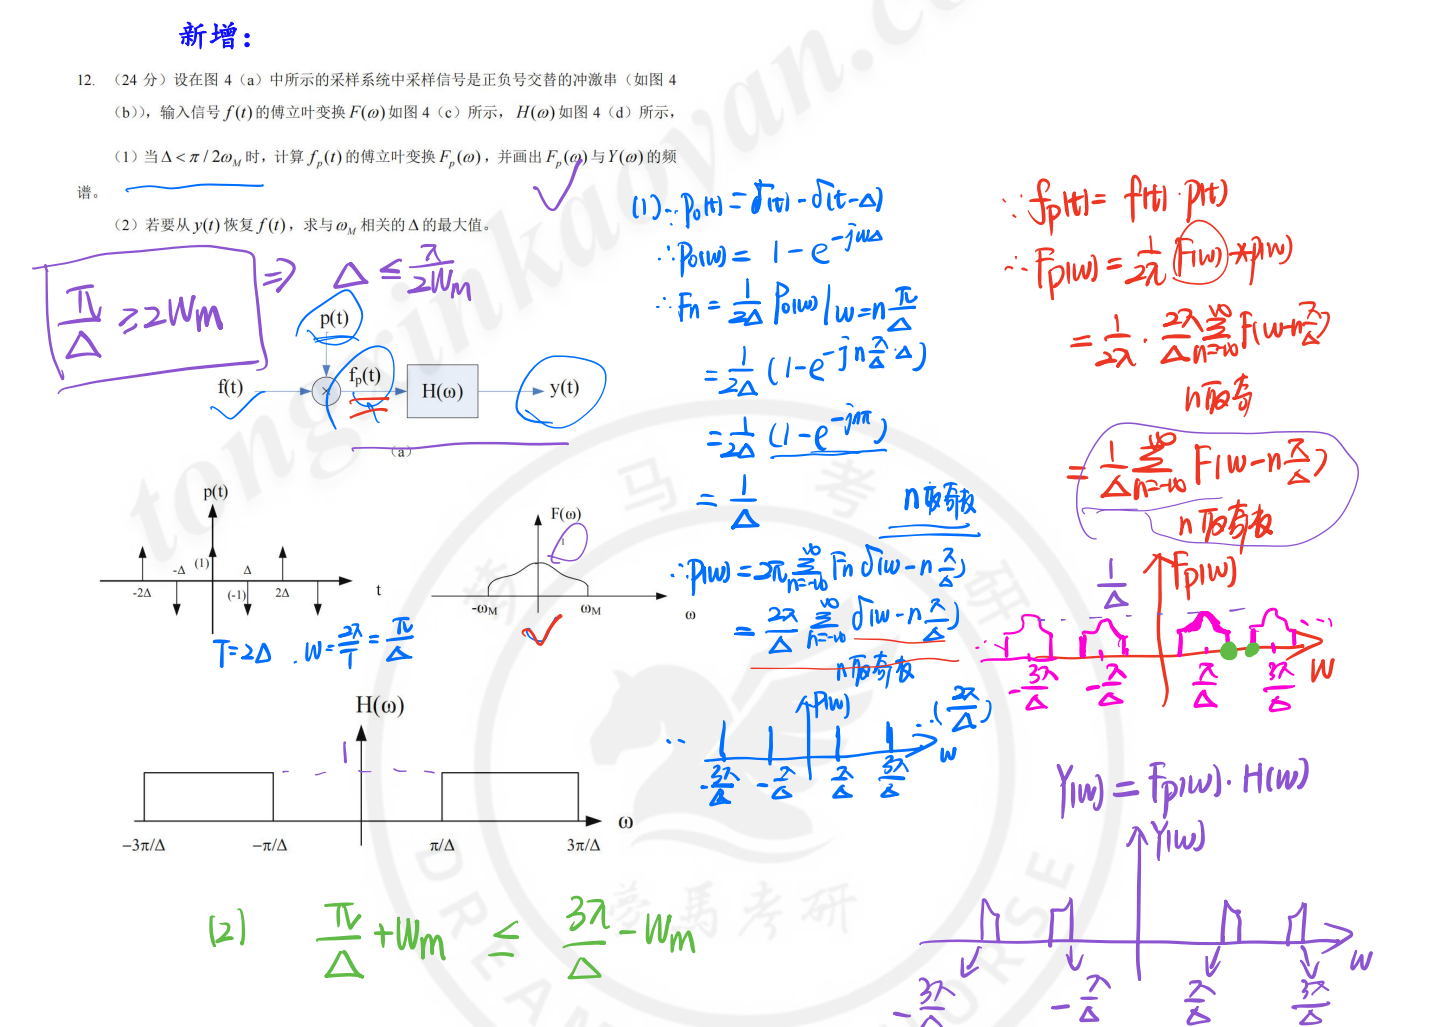 新增：
12. （24 分）设在图 4（a）中所示的采样系统中采样信号是正负号交替的冲激串（如图 4
（b）），输入信号 f(t) 的傅立叶变换 F(ω) 如图 4（c）所示， H(ω) 如图 4（d）所示，
（1）当 Δ < π / 2ω_M 时，计算 f_p(t) 的傅立叶变换 F_p(ω)，并画出 F_p(ω) 与 Y(ω) 的频
谱。
（2）若要从 y(t) 恢复 f(t)，求与 ω_M 相关的 Δ 的最大值。
π/Δ ≥ 2Wm ⇒ Δ ≤ π/2Wm
p(t)
f(t) × f_p(t) H(ω) y(t)
（a）
p(t)
-2Δ -Δ (1) Δ (-1) 2Δ t
T=2Δ . W=2π/T=π/Δ
F(ω)
1
-ω_M ω_M ω
H(ω)
1
−3π/Δ −π/Δ π/Δ 3π/Δ ω
(2) π/Δ+Wm ≤ 3π/Δ−Wm
(1) ∵ P₀(t) = δ(t) − δ(t−Δ)
∴ P₀(w) = 1 − e^{−jwΔ}
∴ Fn = 1/2Δ P₀(w)|w=nπ/Δ
= 1/2Δ (1−e^{−jnπ/Δ·Δ})
= 1/2Δ (1−e^{−jnπ})
= 1/Δ n取奇数
∴ P(w) = 2π Σ_{n=−∞}^{∞} Fn δ(w−nπ/Δ)
= 2π/Δ Σ_{n=−∞}^{∞} δ(w−nπ/Δ)
n取奇数
P(w)
(2π/Δ)
−3π/Δ −π/Δ π/Δ 3π/Δ w
∵ fp(t) = f(t)·p(t)
∴ Fp(w) = 1/2π F(w) * P(w)
= 1/2π · 2π/Δ Σ_{n=−∞}^{∞} F(w−nπ/Δ)
n取奇
= 1/Δ Σ_{n=−∞}^{∞} F(w−nπ/Δ)
n取奇数
1/Δ Fp(w)
−3π/Δ −π/Δ π/Δ 3π/Δ w
Y(w) = Fp(w)·H(w)
Y(w)
−3π/Δ −π/Δ π/Δ 3π/Δ w
tongxinkaoyan.c
马 考 研
梦马考研
DREAM HORSE